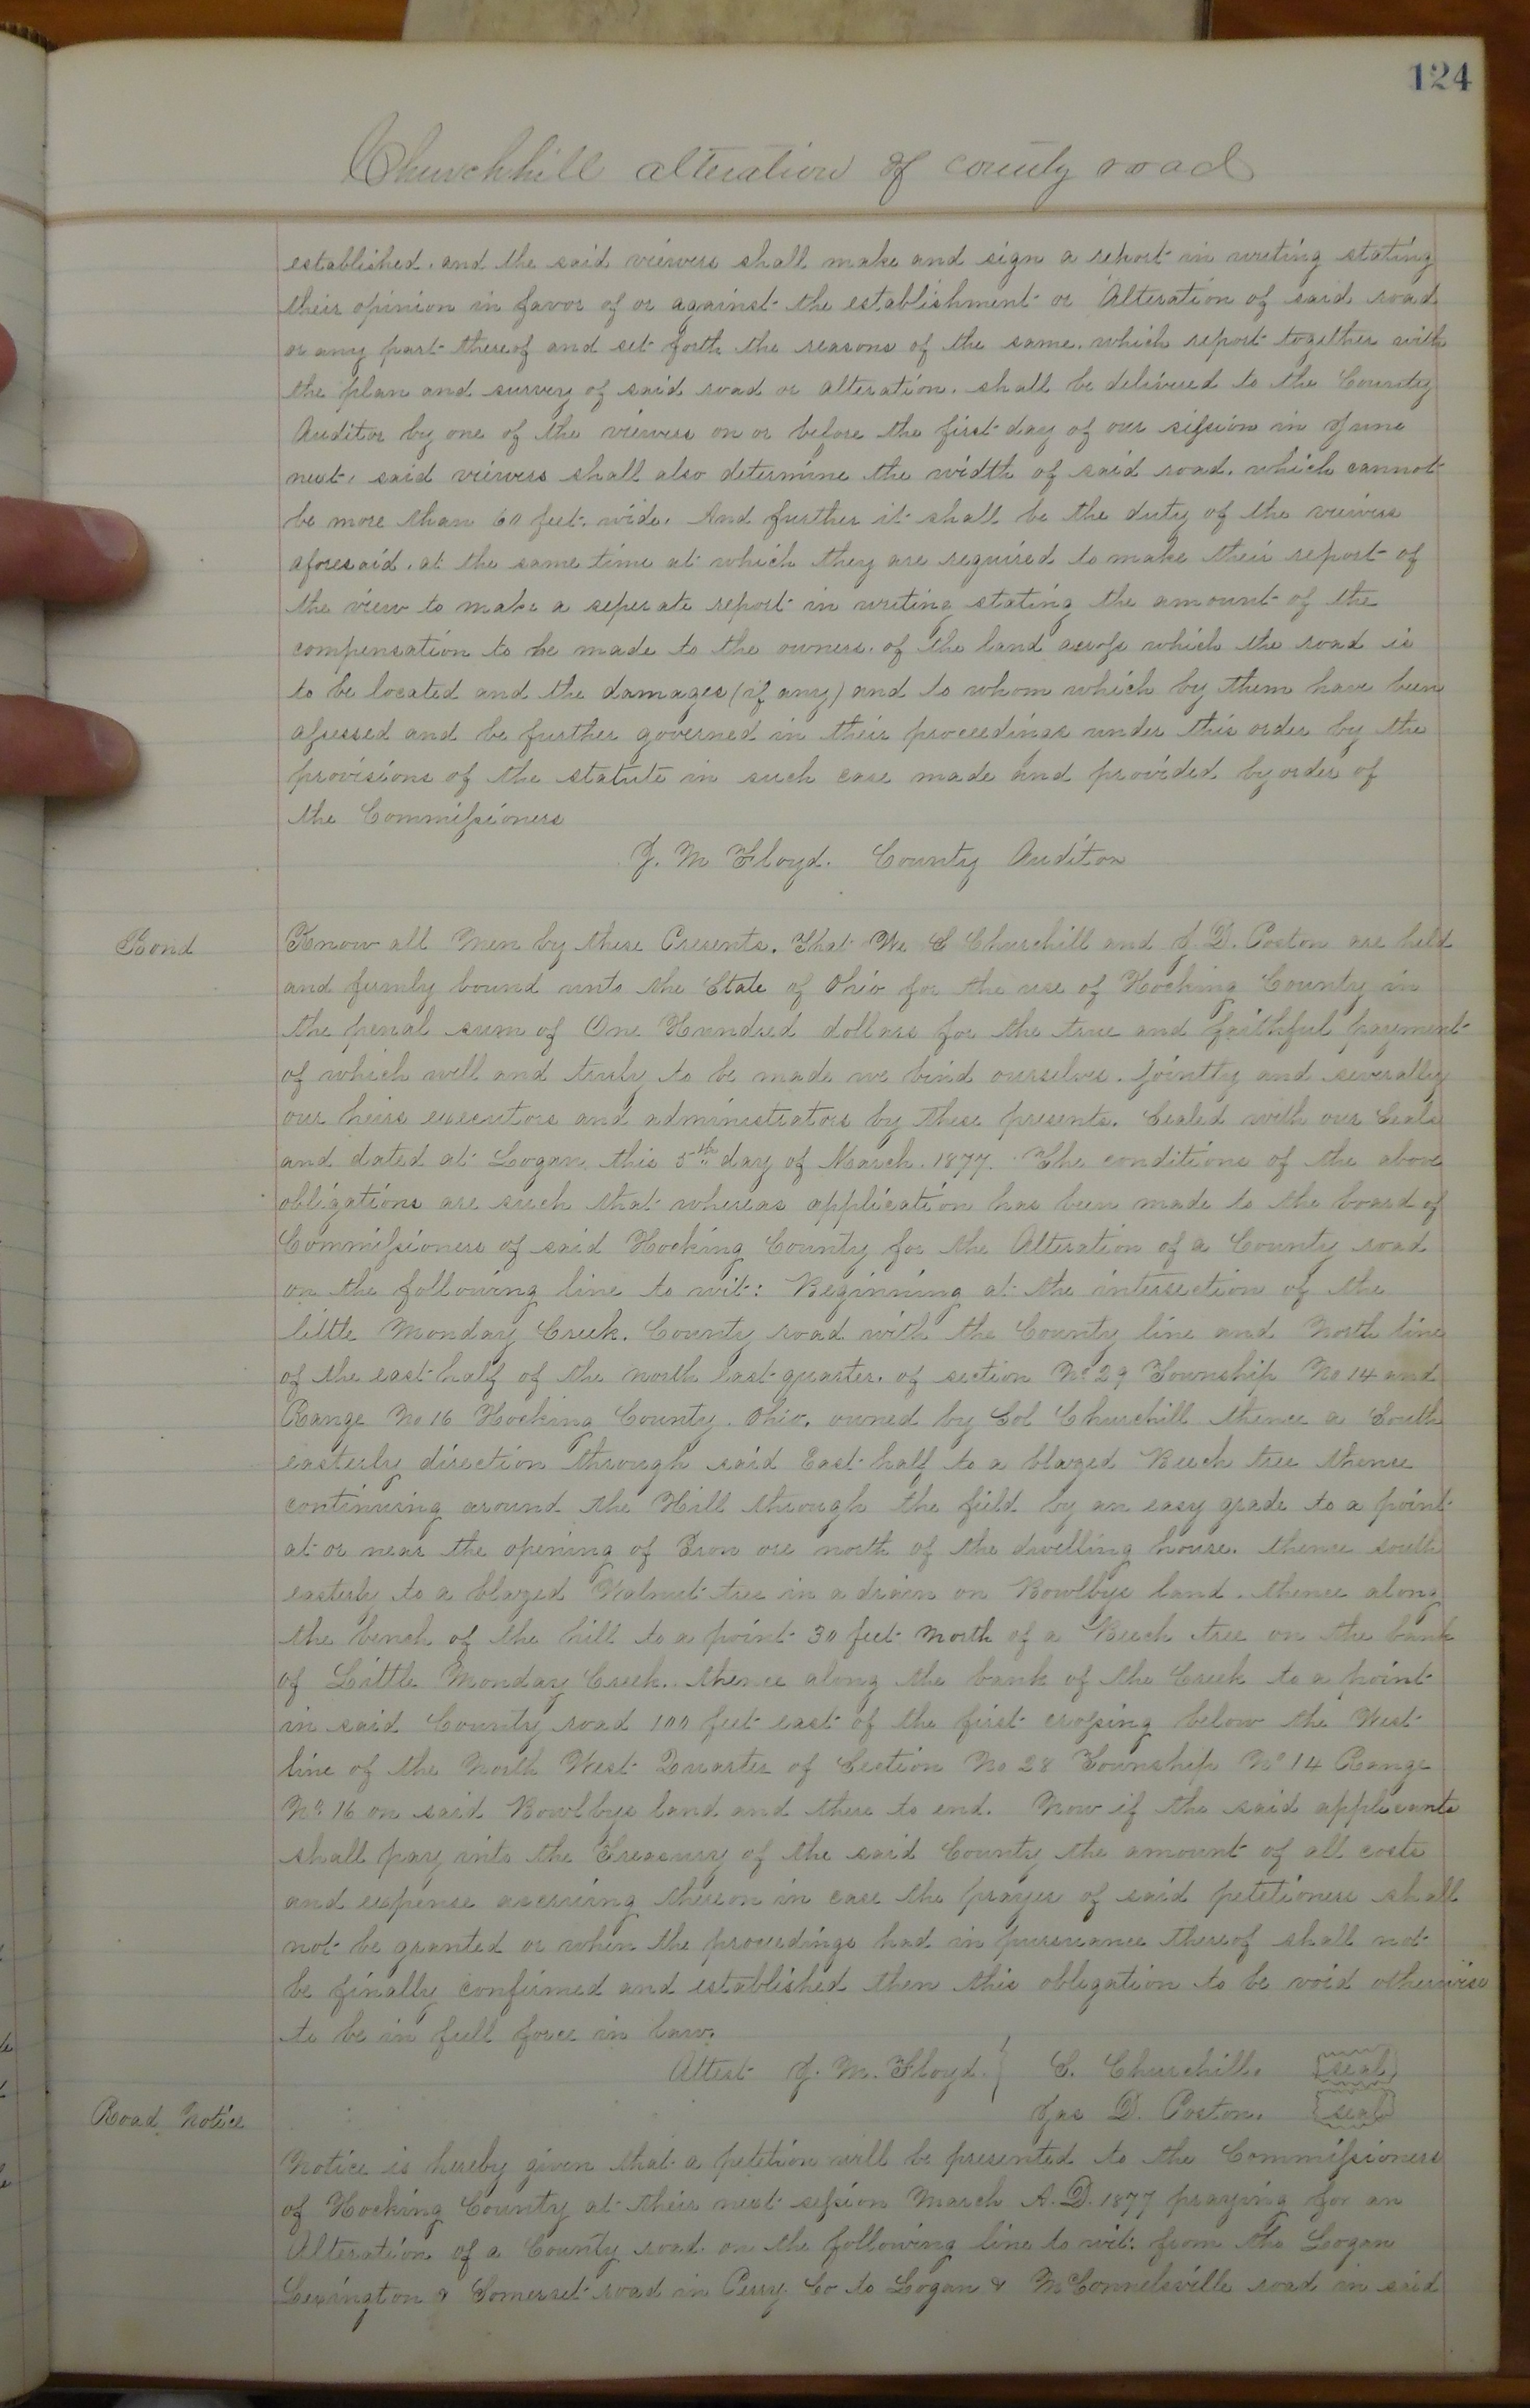 124
Churchhill alteration of county road
established. and the said viewers shall make and sign a report in writing stating
their opinion in favor of or against the establishment or Alteration of said road
or any part thereof and set forth the reasons of the same. which report together with
the plan and survey of said road or alteration. shall be delivered to the County
Auditor by one of the viewers on or before the first day of our session in June
next, said viewers shall also determine the width of said road. which cannot
be more than 60 feet. wide. And further it shall be the duty of the viewers
aforesaid. at the same time at which they are required to make their report of
the view to make a seperate report in writing stating the amount of the
compensation to be made to the owners. of the land across which the road is
to be located and the damages (if any) and to whom which by them have been
assessed and be further governed in their proceedings under this order by the
provisions of the statute in such case made and provided by order of
the Commissioners
J. M Floyd. County Auditor
Bond
Know all Men by these Presents. That We C Churchill and J. D. Poston are held
and firmly bound unto the State of Ohio for the use of Hocking County in
the penal sum of One Hundred dollars for the true and faithful payment
of which well and truly to be made we bind ourselves. jointly and severally
our heirs executors and administrators by these presents. Sealed with our Seals
and dated at Logan this 5th day of March. 1877. The conditions of the above
obligations are such that whereas application has been made to the board of
Commissioners of said Hocking County for the Alteration of a County road
on the following line to wit: Beginning at the intersection of the
little Monday Creek. County road with the County line and North line
of the east half of the north east quarter. of section No 29 Township No 14 and
Range No 16 Hocking County. Ohio. owned by Col Churchill thence a South
easterly direction through said East half to a blazed Beech tree thence
continuing around the Hill through the field by an easy grade to a point
at or near the opening of Iron ore north of the dwelling house. thence south
easterly to a blazed Walnut tree in a drain on Bowlbys land. thence along
the bench of the hill to a point 30 feet North of a Beech tree on the bank
of Little Monday Creek. thence along the bank of the Creek to a point
in said County road 100 feet east of the first crossing below the West
line of the North West Quarter of Section No 28 Township No 14 Range
No 16 on said Bowlbys land and there to end. Now if the said applicants
shall pay into the Treasury of the said County the amount of all costs
and expense accruing thereon in case the prayer of said petitioners shall
not be granted or when the proceedings had in pursuance thereof shall not
be finally confirmed and established then this obligation to be void otherwise
to be in full force in law.
Attest J. M. Floyd. } C. Churchill. seal
Jas D. Poston. seal
Road Notice
Notice is hereby given that a petition will be presented to the Commissioners
of Hocking County at their next session March A. D. 1877 praying for an
Alteration of a County road on the following line to wit: from the Logan
Lexington & Somerset road in Perry Co to Logan & McConnelsville road in said